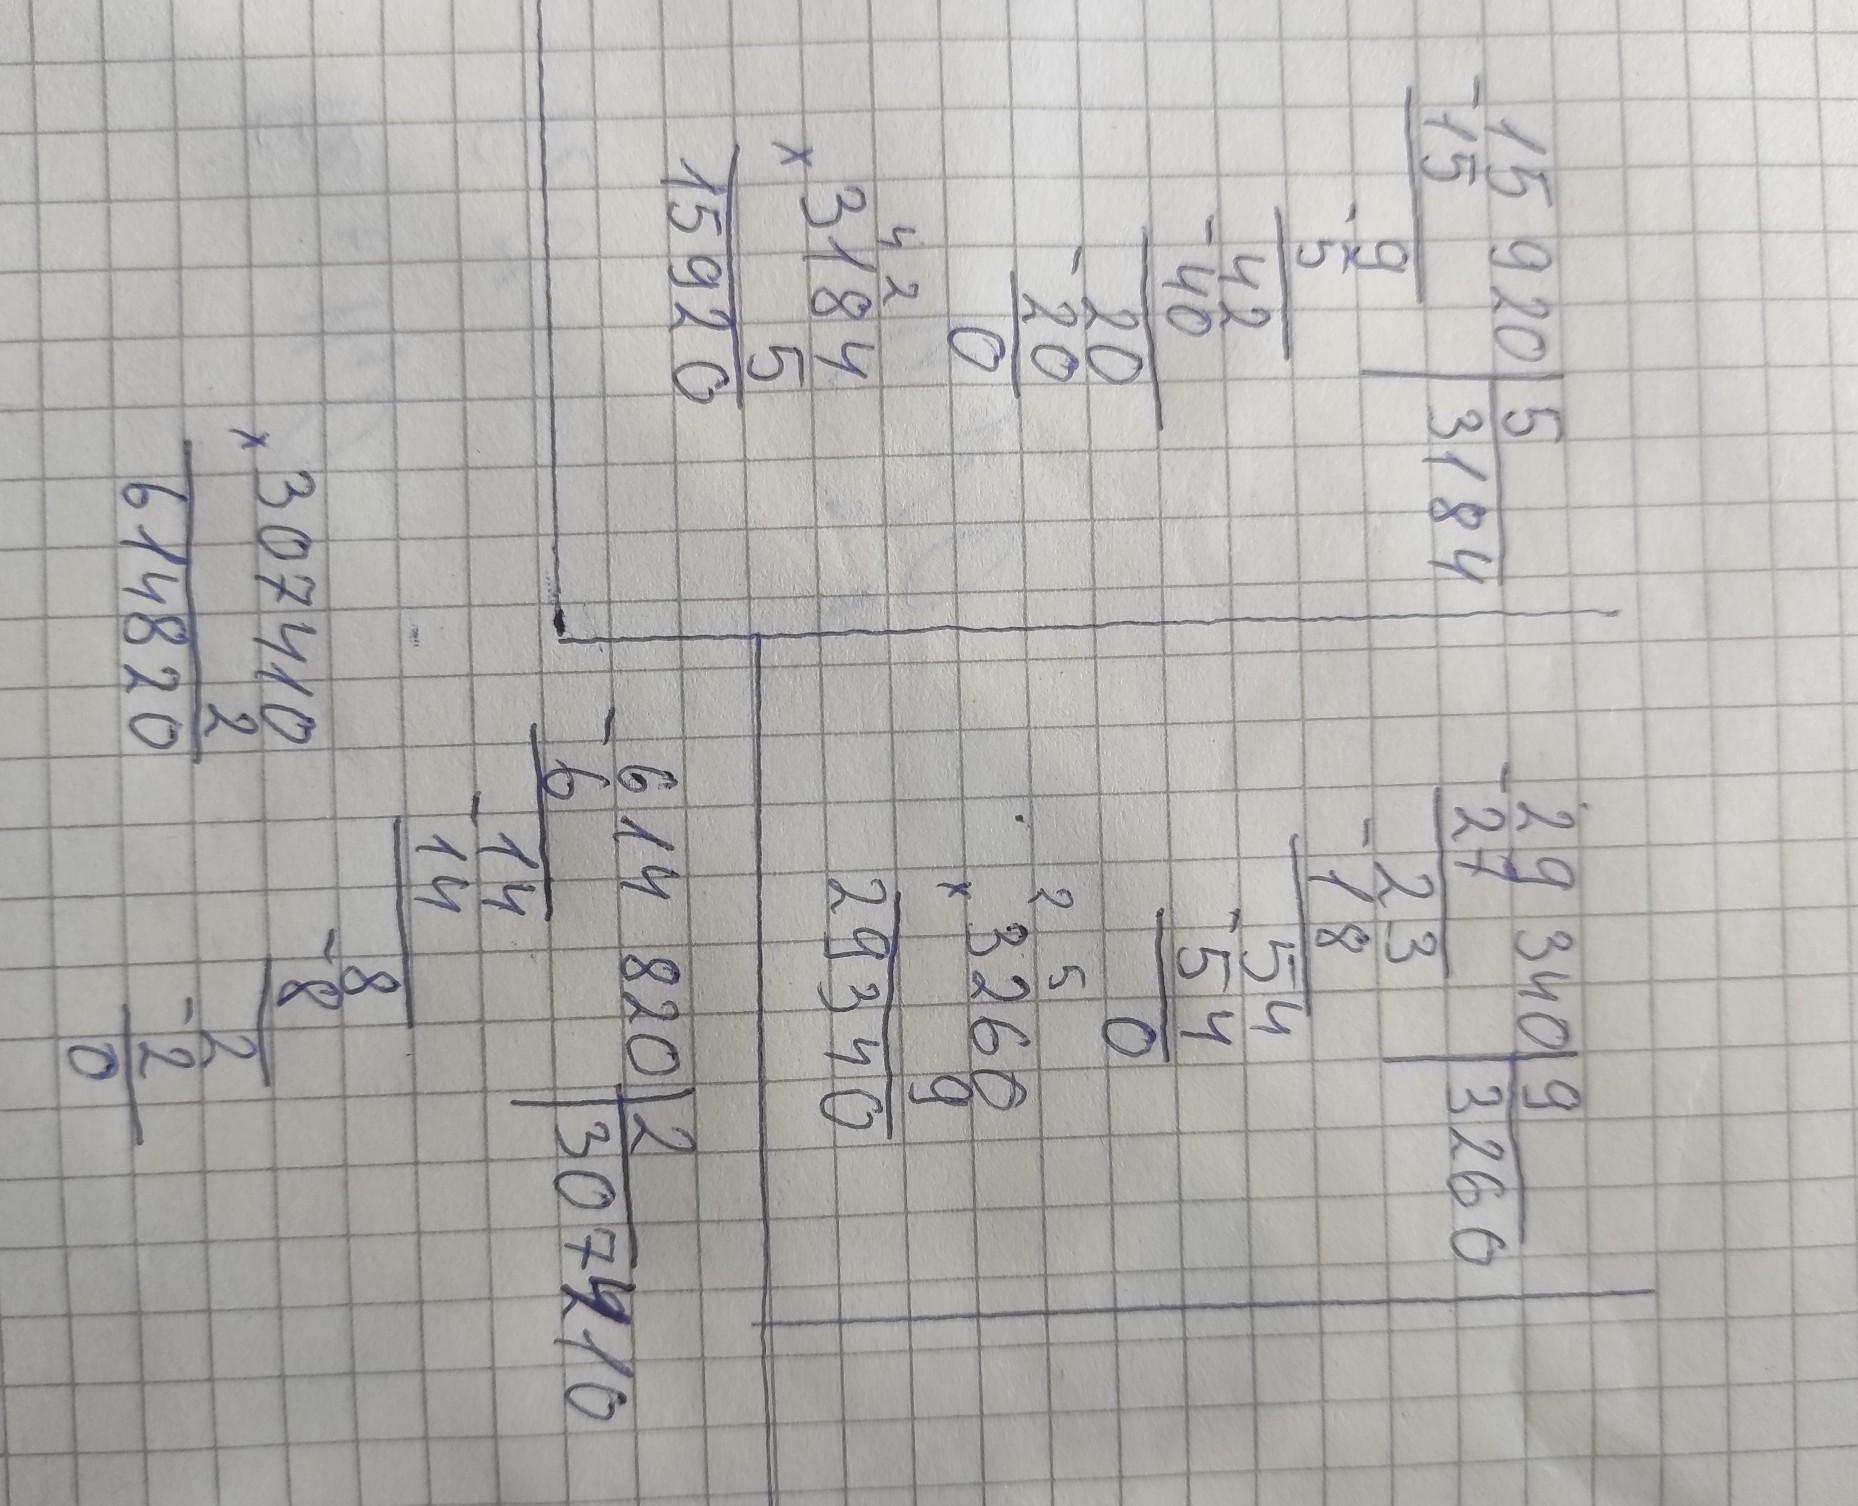 15 920 | 5
- 15 | 3184
- 9
5
42
- 40
20
- 20
0
4 2
× 3184
5
15920
29 340 | 9
- 27 | 3260
- 23
18
54
- 54
0
2 5
× 3260
9
29340
614 820 | 2
- 6 | 307410
14
- 14
8
- 8
2
- 2
0
× 307410
2
614820